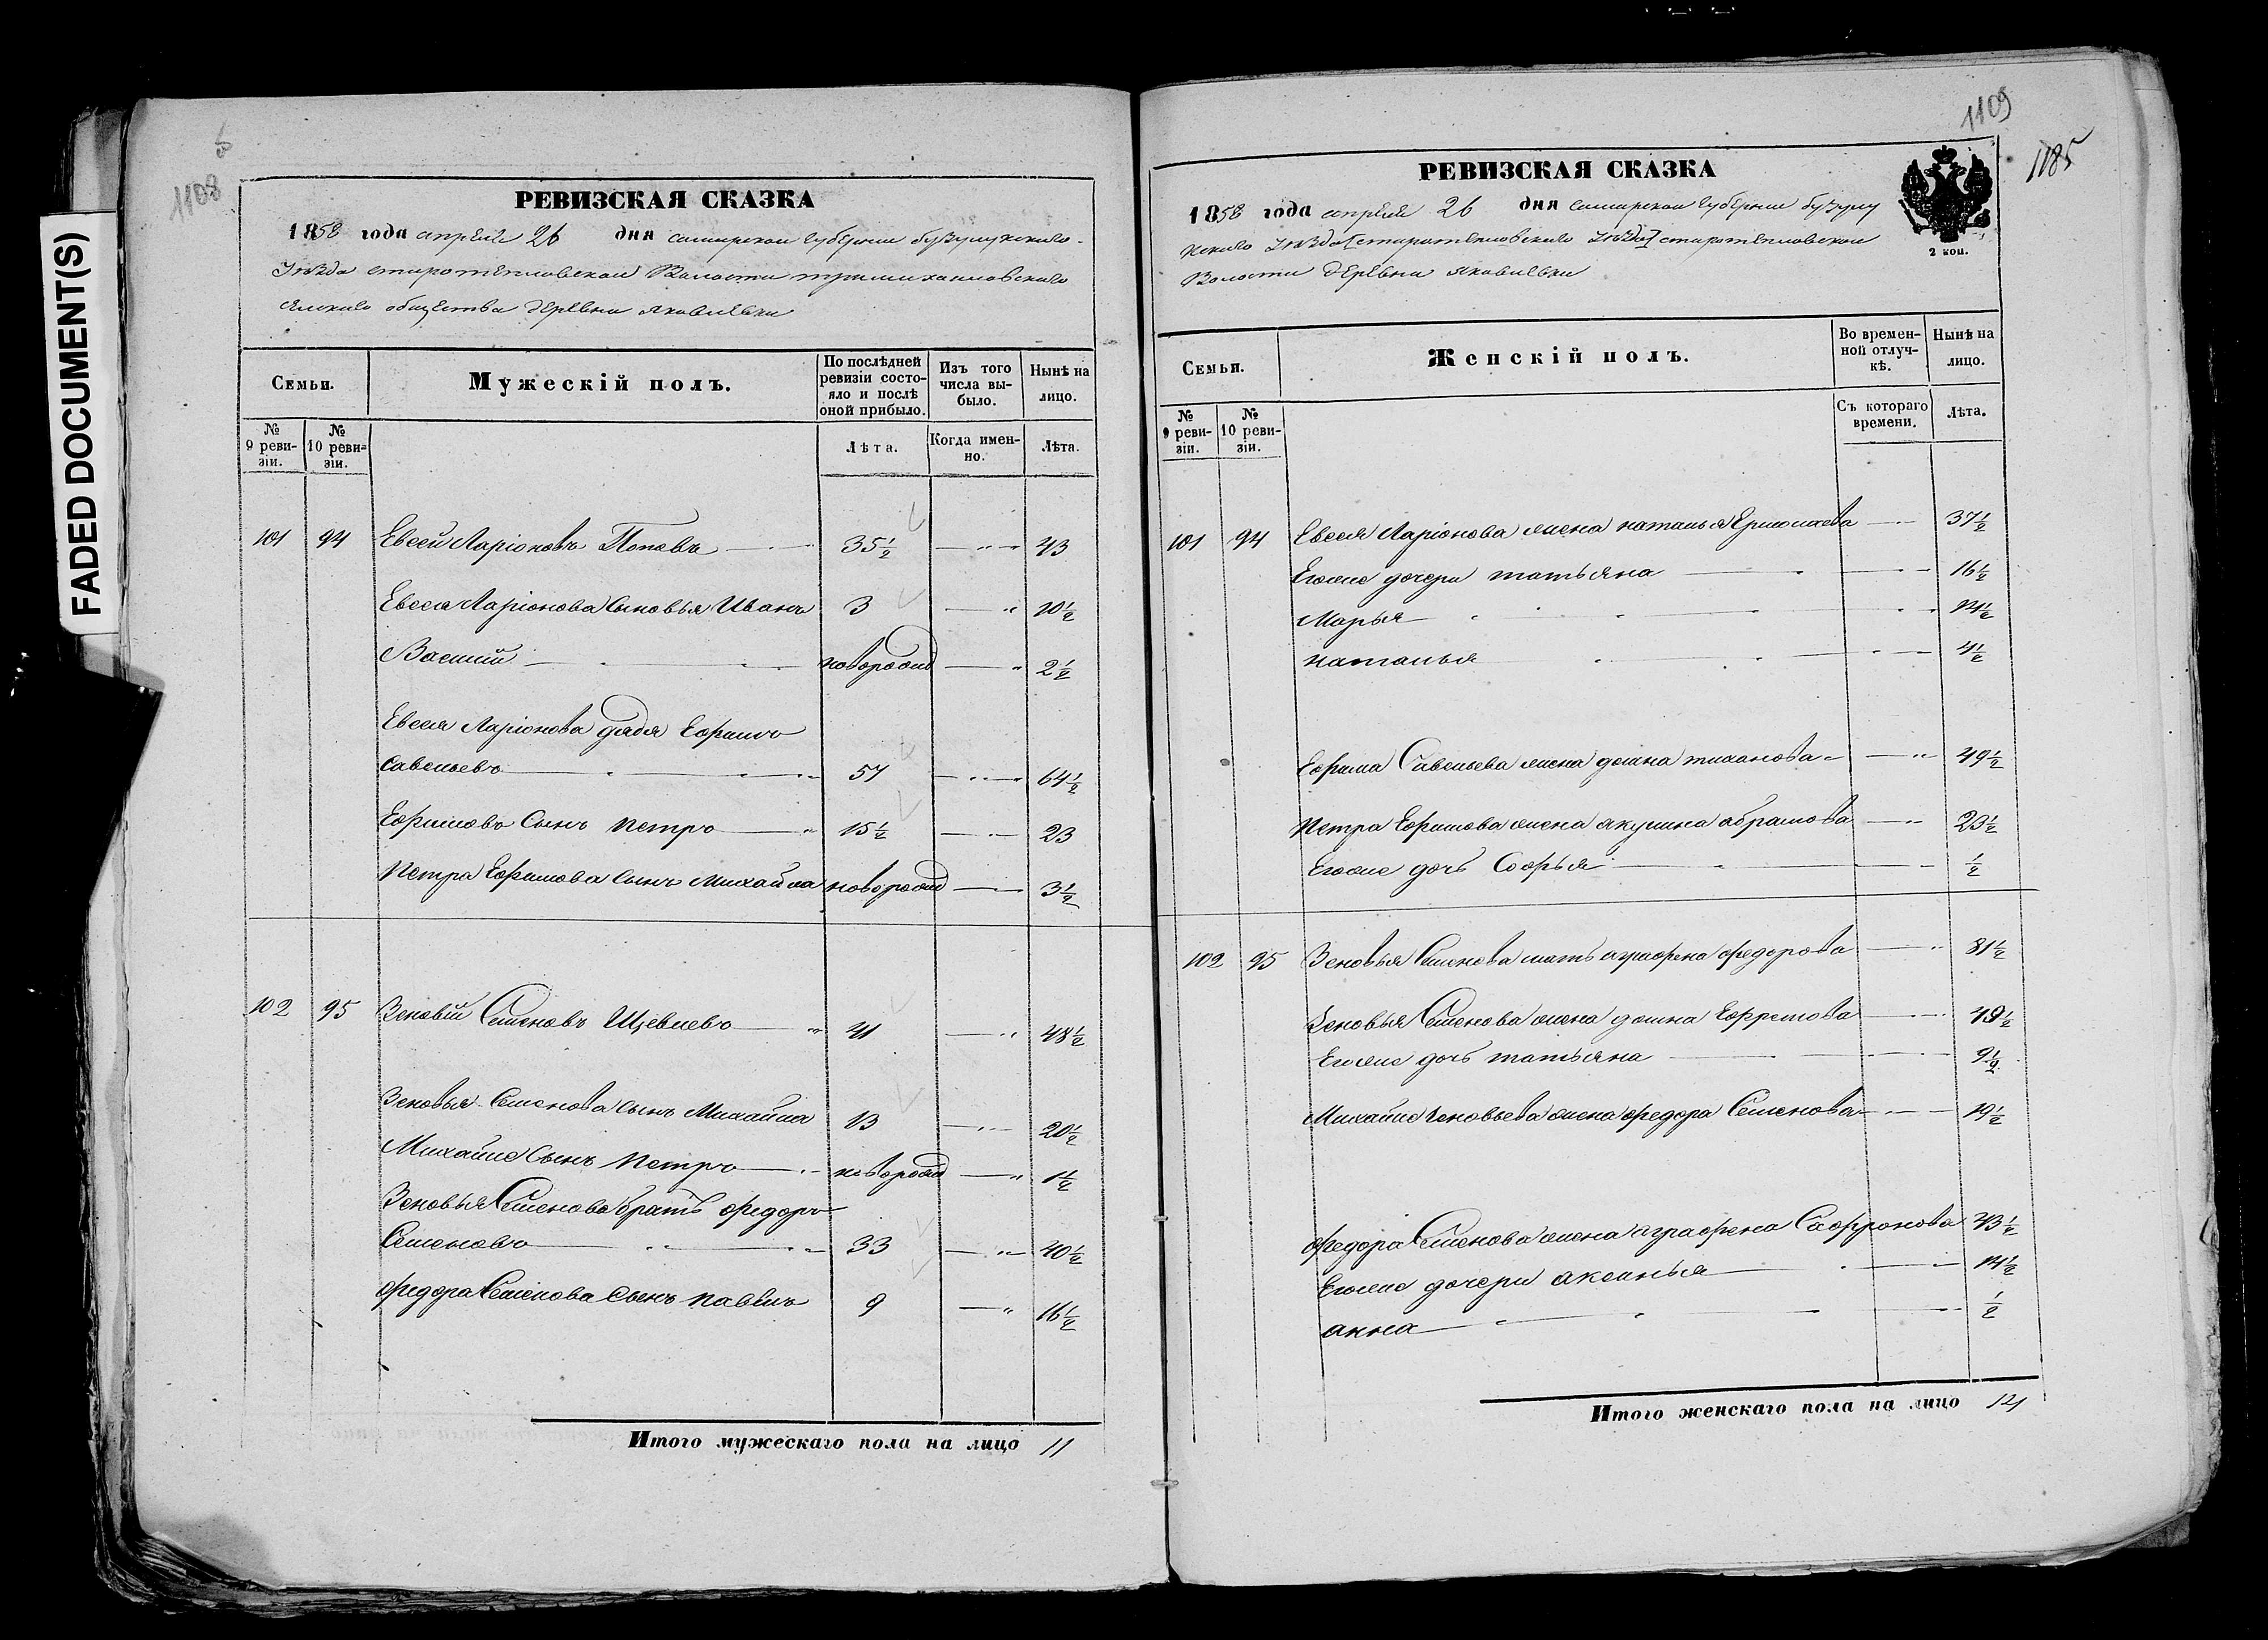 FADED DOCUMENT(S)
1108
РЕВИЗСКАЯ СКАЗКА
1858 года апреля 26 дня самарской губернии бузулукскаго
Уезда старотепловской Волости
сельскаго общества деревни яковлевки
Семьи.
Мужескій полъ.
По послѣдней ревизіи состояло и послѣ оной прибыло.
Изъ того числа выбыло.
Нынѣ на лицо.
№ 9 ревизіи.
№ 10 ревизіи.
Лѣта.
Когда именно.
Лѣта.
101 94 Евсей Ларіоновъ Поповъ 35½ — „ — 43
Евсея Ларіонова Сыновья Иванъ 3 — „ 10½
Василий — новорожд — „ 2½
Евсея Ларіонова дядя Ефимъ
Савельевъ 57 — „ — 64½
Ефимовъ Сынъ петръ 15½ — „ — 23
Петра Ефимова Сынъ михайла новорожд — 3½
102 95 Зеновій Семеновъ Щевлевъ 41 — „ 48½
Зеновья Семенова сынъ Михайла 13 — „ — 20½
Михайлы Сынъ петръ — новорожд — „ 1½
Зеновья Семенова братъ федоръ
Семеновъ 33 — „ — 40½
федора Семенова Сынъ павелъ 9 — „ 16½
Итого мужескаго пола на лицо 11
1109
1185
РЕВИЗСКАЯ СКАЗКА
1858 года апреля 26 дня самарской губернии бузулу
кскаго Уезда [старотепловскаго Уезда] старотепловской
Волости деревни яковлевки
2 коп.
Семьи.
Женскій полъ.
Во временной отлучкѣ.
Нынѣ на лицо.
№ 9 ревизіи.
№ 10 ревизіи.
Съ котораго времени.
Лѣта.
101 94 Евсея Ларіонова жена наталья Ермолаева — 37½
Егоже дочери татьяна — 16½
Марья — 14½
наталья — 4½
Ефима Савельева жена домна тиханова — „ 49½
Петра Ефимова жена акулина абрамова — „ 23½
Егоже дочь Софья — ½
102 95 Зеновья Семенова мать аграфена федорова — „ 81½
Зеновья Семенова жена домна Ефремова — 49½
Егоже дочь татьяна — 9½
Михайлы Зеновьева жена федора Семенова — 19½
федора Семенова жена аграфена Сафронова 43½
Егоже дочери аксинья — 14½
анна — ½
Итого женскаго пола на лицо 14